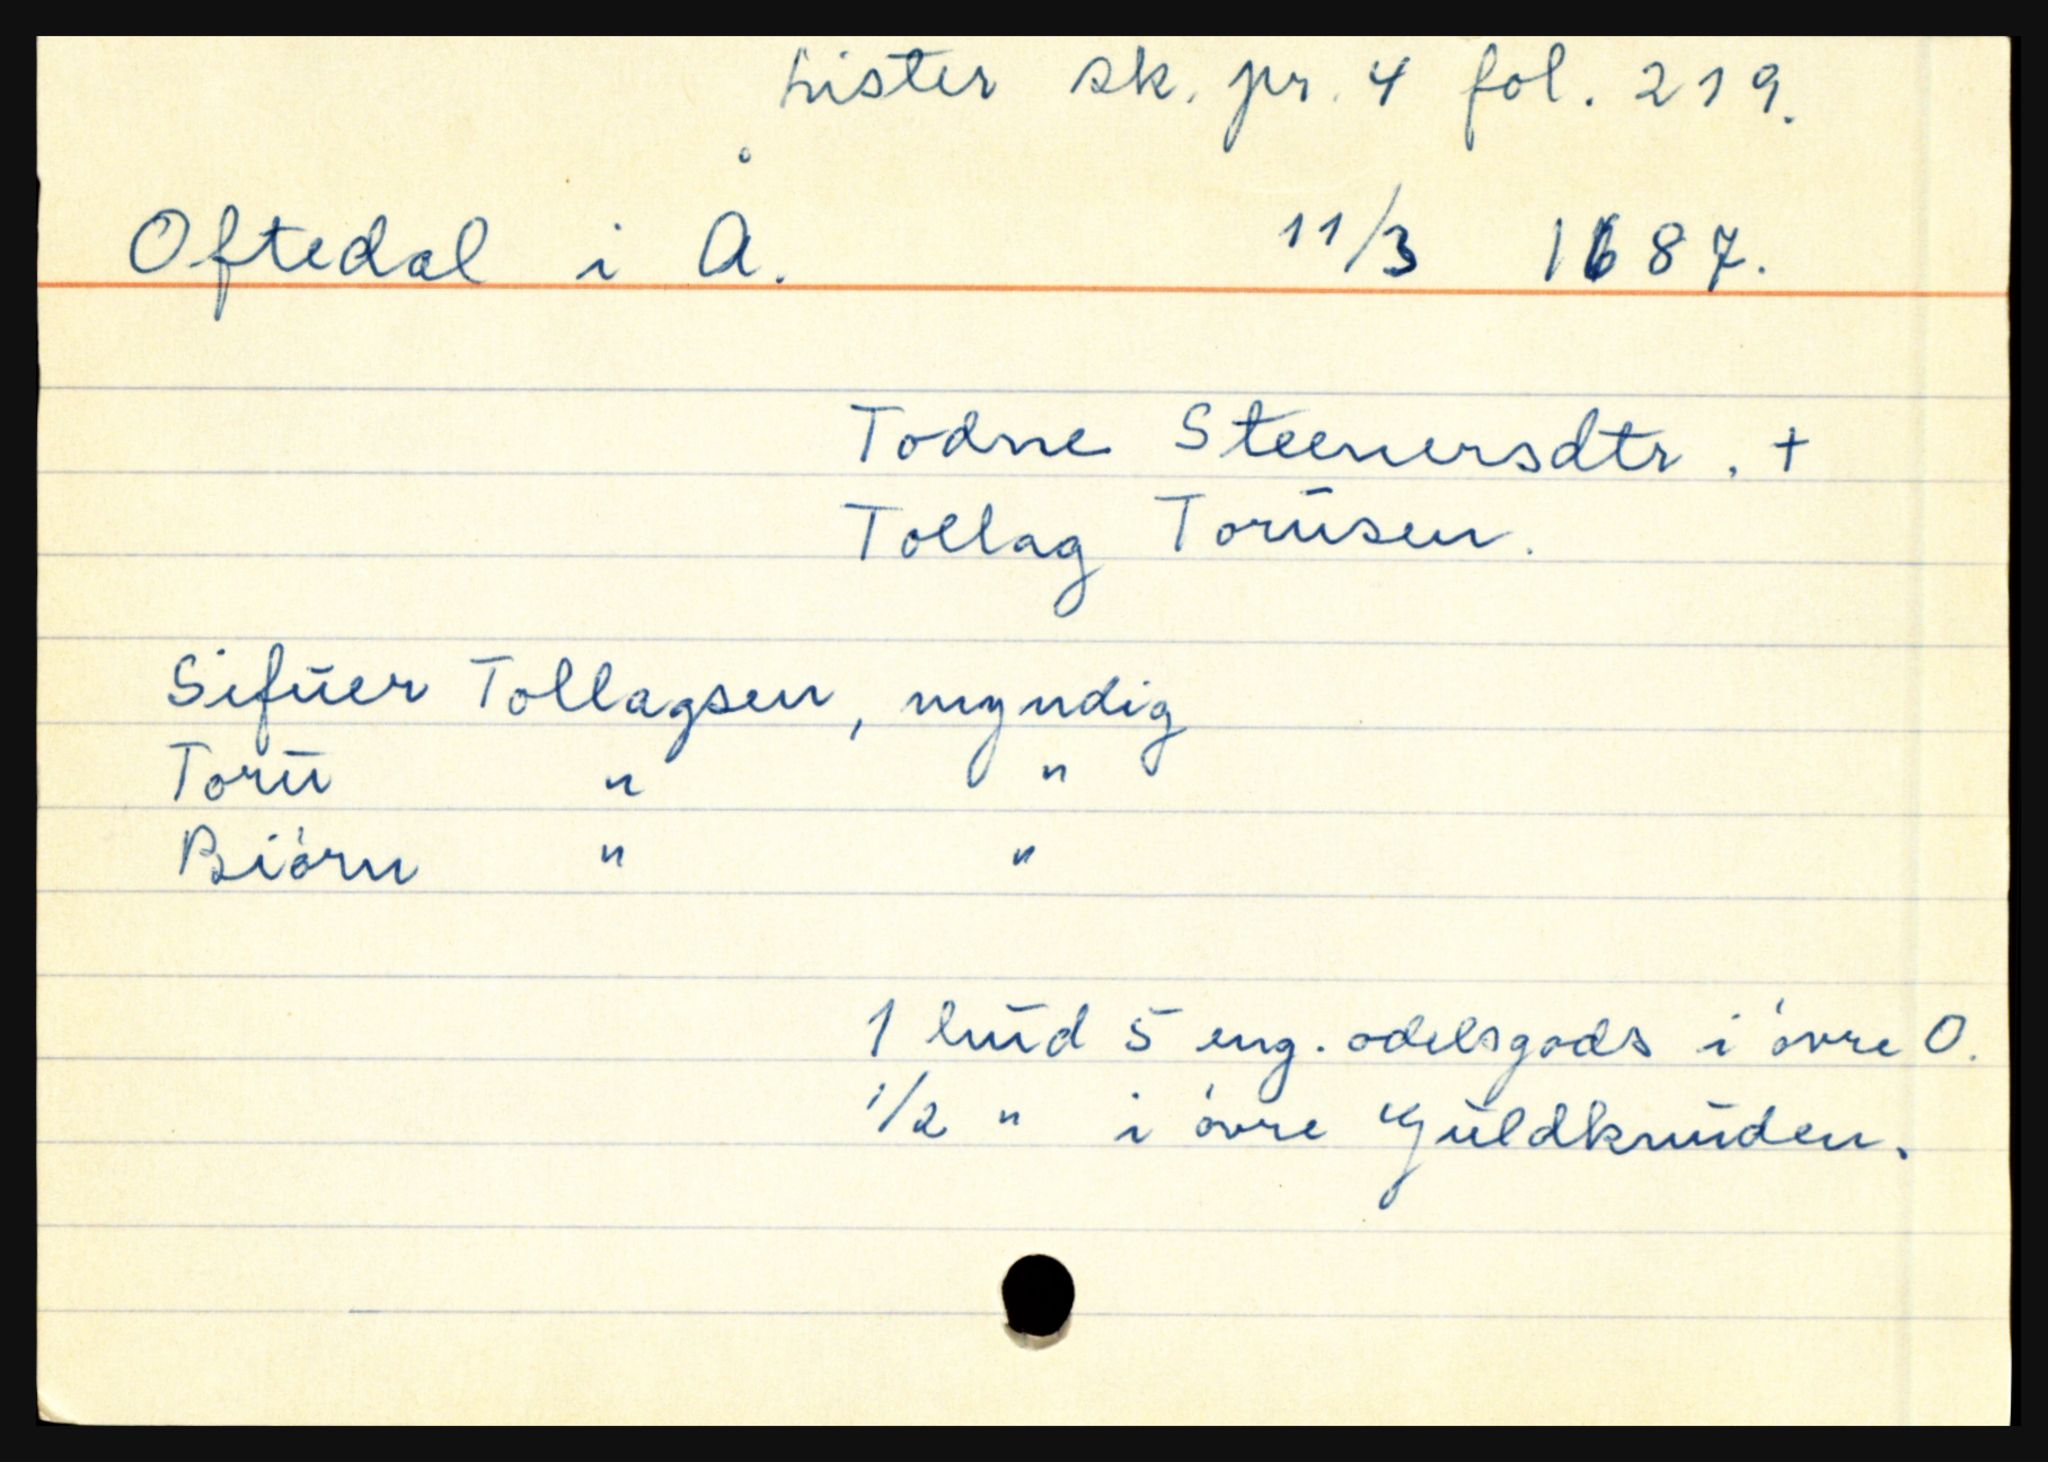 Lister sk. pr. 4 fol. 219.
Oftedal i Å. 11/3 1687.
Todne Steenersdtr. +
Tollag Torūsen.
Sifūer Tollagsen, myndig
Torū " "
Biörn " "
1 hūd 5 eng. odelsgods i övre O.
1/2 " i övre Gūldknūden.